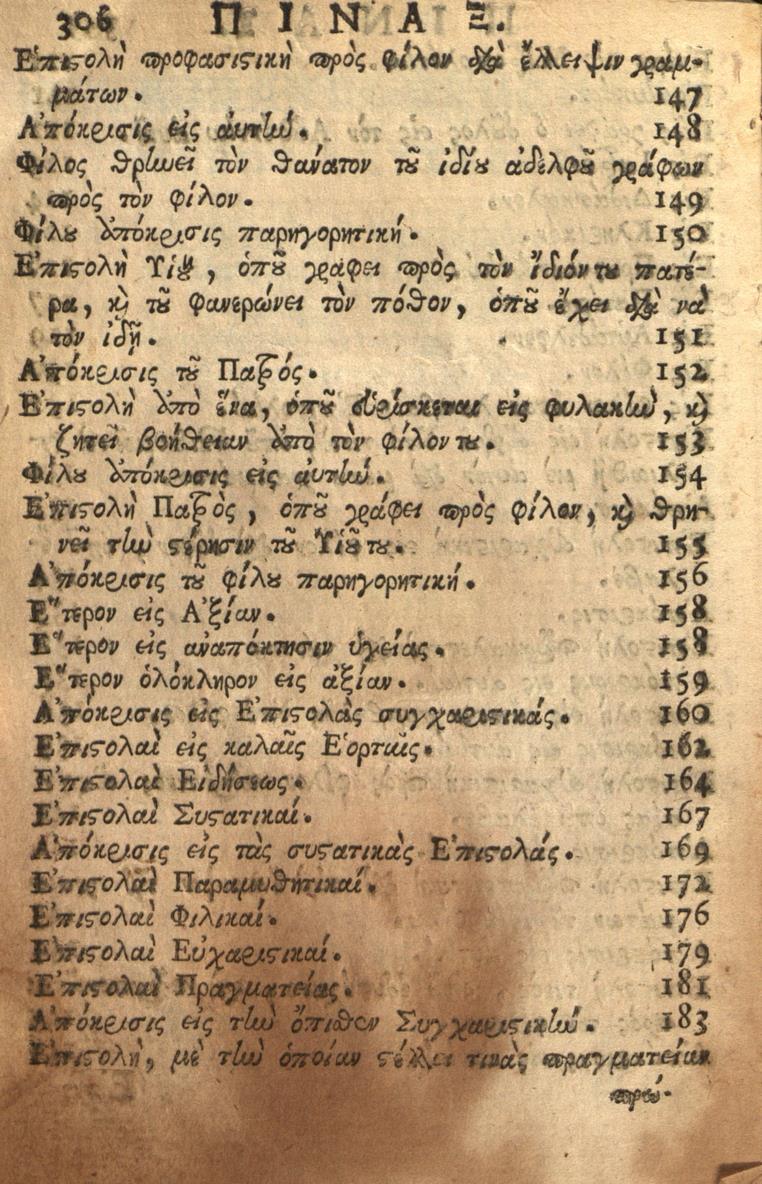 306 ΠΙΝΑΞ.
Ἐπιστολὴ προφασιστικὴ πρὸς φίλον διὰ ἔλλειψιν γραμ-
μάτων. 147
Ἀπόκρισις εἰς ἀυτὴν. 148
Φίλος θρηνεῖ τὸν θάνατον τοῦ ἰδίου ἀδελφοῦ γράφων
πρὸς τὸν φίλον. 149
Φίλου ἀπόκρισις παρηγορητική. 150
Ἐπιστολὴ Ὑιοῦ, ὁποῦ γράφει πρὸς τὸν ἴδιόν του πατέ-
ρα, καὶ τοῦ φανερώνει τὸν πόθον, ὁποῦ ἔχει διὰ νὰ
τὸν ἰδῇ. 151
Ἀπόκρισις τοῦ Πατρός. 152
Ἐπιστολὴ ἀπὸ ἕνα, ὁποῦ εὑρίσκεται εἰς φυλακὴν, καὶ
ζητεῖ βοήθειαν ἀπὸ τὸν φίλον του. 153
Φίλου ἀπόκρισις εἰς ἀυτὴν. 154
Ἐπιστολὴ Πατρὸς, ὁποῦ γράφει πρὸς φίλον, καὶ θρη-
νεῖ τὴν στέρησιν τοῦ Ὑιοῦ του. 155
Ἀπόκρισις τοῦ φίλου παρηγορητική. 156
Ἕτερον εἰς Ἀξίαν. 158
Ἕτερον εἰς ἀναπόκτησιν ὑγείας. 158
Ἕτερον ὁλόκληρον εἰς ἀξίαν. 159
Ἀπόκρισις εἰς Ἐπιστολὰς συγχαριστικάς. 160
Ἐπιστολαὶ εἰς καλαῖς Ἑορταῖς. 162
Ἐπιστολαὶ Εἰδήσεως. 164
Ἐπιστολαὶ Συστατικαί. 167
Ἀπόκρισις εἰς τὰς συστατικὰς Ἐπιστολάς. 169
Ἐπιστολαὶ Παραμυθητικαί. 172
Ἐπιστολαὶ Φιλικαί. 176
Ἐπιστολαὶ Εὐχαριστικαί. 179
Ἐπιστολαὶ Πραγματείας. 181
Ἀπόκρισις εἰς τὴν ὄπιθεν Συγχαριστικὴν. 183
Ἐπιστολὴ, μὲ τὴν ὁποίαν στέλλει τινὰς πραγματείαν
πρώ-